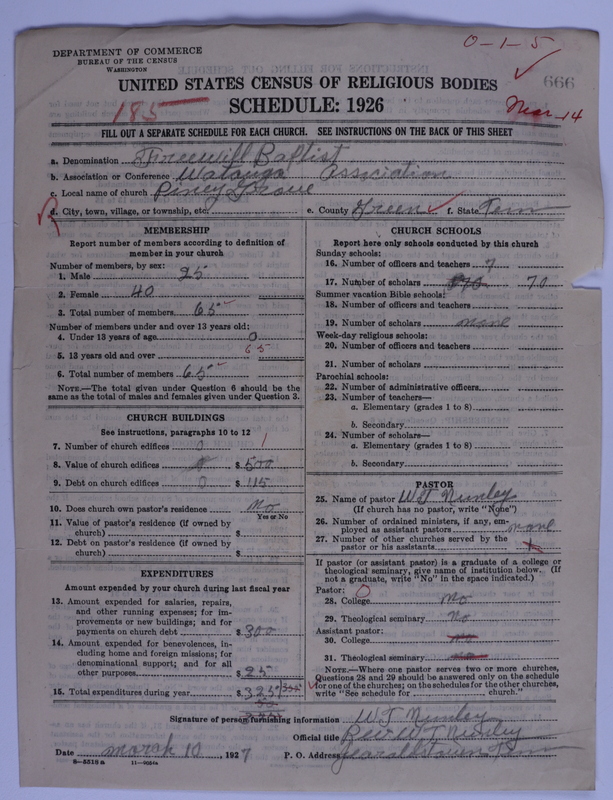 DEPARTMENT OF COMMERCE
BUREAU OF THE CENSUS
WASHINGTON
0-1-5
666
UNITED STATES CENSUS OF RELIGIOUS BODIES
185
SCHEDULE: 1926
Mar 14
FILL OUT A SEPARATE SCHEDULE FOR EACH CHURCH. SEE INSTRUCTIONS ON THE BACK OF THIS SHEET
a. Denomination Freewill Baptist
b. Association or Conference Watauga Association
c. Local name of church Piney Grove
R d. City, town, village, or township, etc. e. County Green f. State Tenn
MEMBERSHIP
Report number of members according to definition of
member in your church
Number of members, by sex:
1. Male 25
2. Female 40
3. Total number of members. 65
Number of members under and over 13 years old:
4. Under 13 years of age 0
5. 13 years old and over 65
6. Total number of members 65
NOTE.—The total given under Question 6 should be the
same as the total of males and females given under Question 3.
CHURCH BUILDINGS
See instructions, paragraphs 10 to 12
7. Number of church edifices 0 1
8. Value of church edifices 0 $ 500
9. Debt on church edifices 0 $ 115
10. Does church own pastor's residence No
Yes or No
11. Value of pastor's residence (if owned by
church) $
12. Debt on pastor's residence (if owned by
church) $
EXPENDITURES
Amount expended by your church during last fiscal year
13. Amount expended for salaries, repairs,
and other running expenses; for im-
provements or new buildings; and for
payments on church debt $ 300
14. Amount expended for benevolences, in-
cluding home and foreign missions; for
denominational support; and for all
other purposes $ 25
15. Total expenditures during year $ 325
CHURCH SCHOOLS
Report here only schools conducted by this church
Sunday schools:
16. Number of officers and teachers 7
17. Number of scholars 70
Summer vacation Bible schools:
18. Number of officers and teachers
19. Number of scholars none
Week-day religious schools:
20. Number of officers and teachers
21. Number of scholars
Parochial schools:
22. Number of administrative officers
23. Number of teachers—
a. Elementary (grades 1 to 8)
b. Secondary
24. Number of scholars—
a. Elementary (grades 1 to 8)
b. Secondary
PASTOR
25. Name of pastor W T Nunley
(If church has no pastor, write "None")
26. Number of ordained ministers, if any, em-
ployed as assistant pastors none
27. Number of other churches served by the
pastor or his assistants
If pastor (or assistant pastor) is a graduate of a college or
theological seminary, give name of institution below. (If
not a graduate, write "No" in the space indicated.)
Pastor: 0
28. College no
29. Theological seminary no
Assistant pastor:
30. College no
31. Theological seminary no
NOTE.—Where one pastor serves two or more churches,
Questions 28 and 29 should be answered only on the schedule
for one of the churches; on the schedules for the other churches,
write "See schedule for church."
Signature of person furnishing information W T Nunley
Official title Rev W T Nunley
Date march 10, 1927 P. O. Address Tenn
8-5518 a 11-9054a